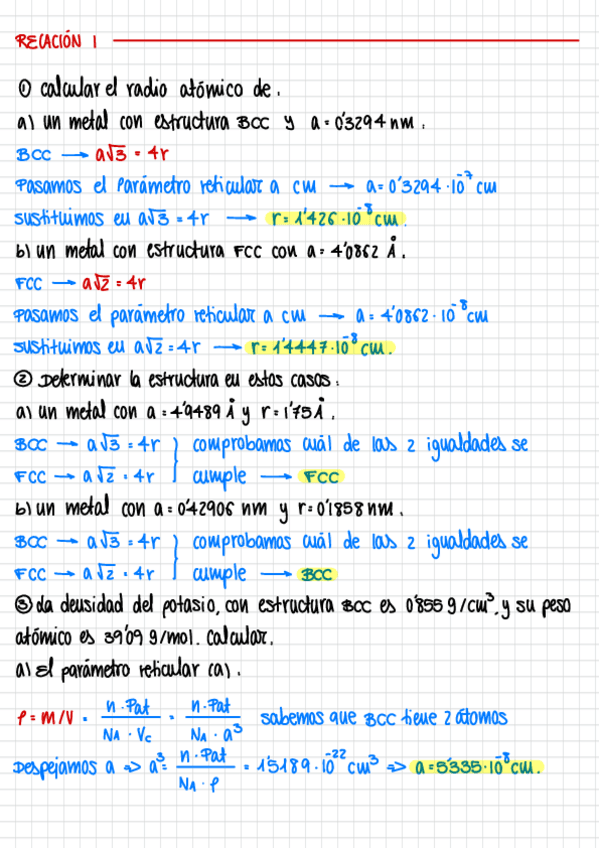 RELACIÓN 1
① calcular el radio atómico de:
a) un metal con estructura BCC y a = 0'3294 nm.
BCC → a√3 = 4r
Pasamos el Parámetro reticular a cm → a = 0'3294·10⁻⁷ cm
sustituimos en a√3 = 4r → r = 1'426·10⁻⁸ cm.
b) un metal con estructura FCC con a = 4'0862 Å.
FCC → a√2 = 4r
Pasamos el parámetro reticular a cm → a = 4'0862·10⁻⁸ cm
sustituimos en a√2 = 4r → r = 1'4447·10⁻⁸ cm.
② Determinar la estructura en estos casos:
a) un metal con a = 4'9489 Å y r = 1'75 Å.
BCC → a√3 = 4r } comprobamos cuál de las 2 igualdades se
FCC → a√2 = 4r } cumple → FCC
b) un metal con a = 0'42906 nm y r = 0'1858 nm.
BCC → a√3 = 4r } comprobamos cuál de las 2 igualdades se
FCC → a√2 = 4r } cumple → BCC
③ La densidad del potasio, con estructura BCC es 0'855 g/cm³, y su peso
atómico es 39'09 g/mol. calcular.
a) El parámetro reticular (a).
ρ = M/V = n·Pat / NA·Vc = n·Pat / NA·a³ sabemos que BCC tiene 2 átomos
Despejamos a => a³ = n·Pat / NA·ρ = 1'5189·10⁻²² cm³ => a = 5'335·10⁻⁸ cm.